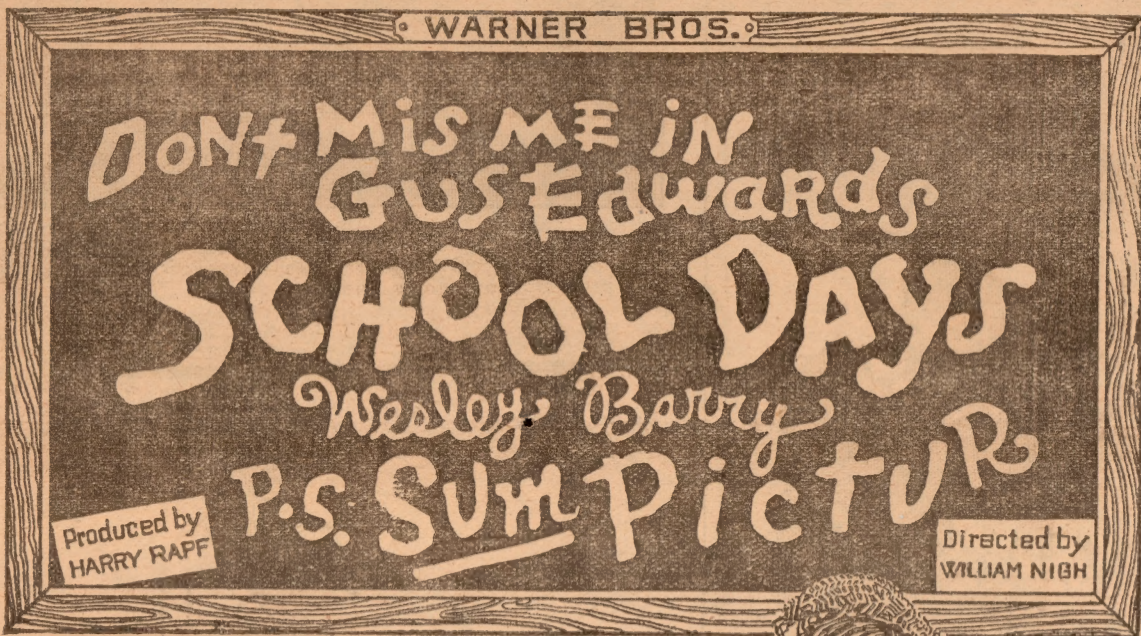 WARNER BROS.
DONt Mis ME iN
GUS EdwaRds
SCHOOL DAYS
Wesley Barry
P.S. Sum PictuR
Produced by
HARRY RAPF
Directed by
WILLIAM NIGH